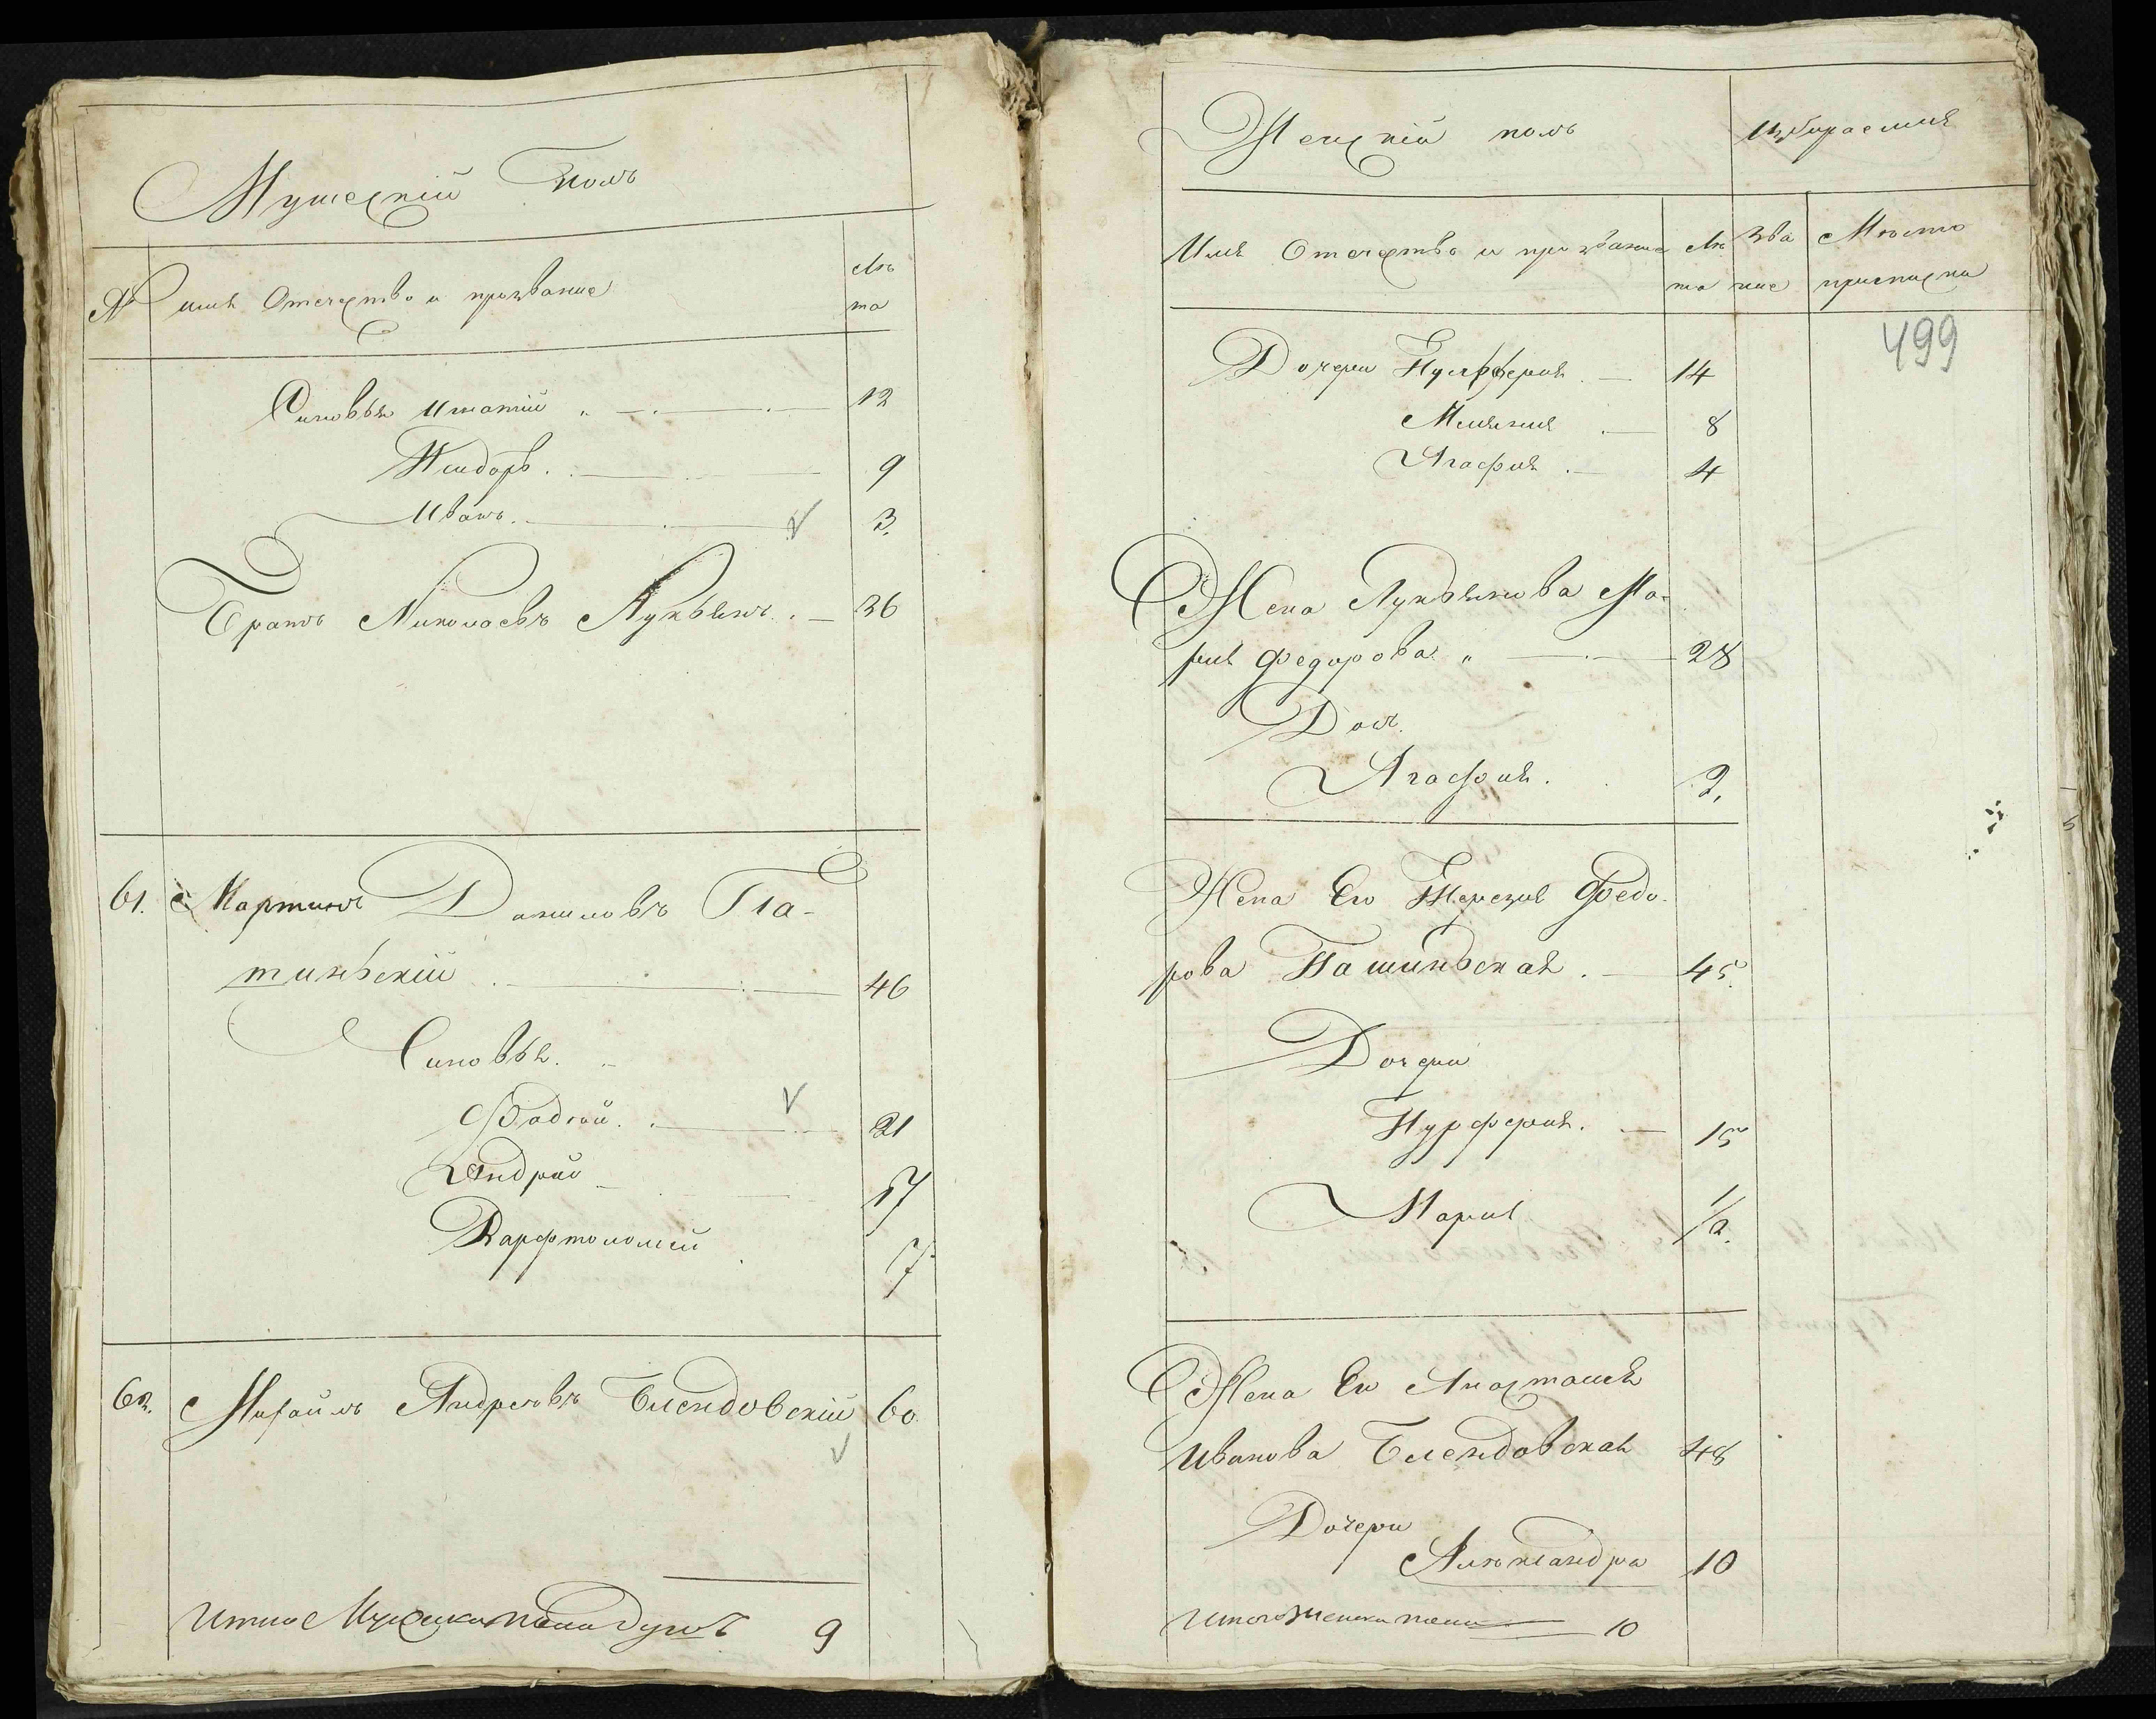 Мужескій Полъ
№ имя Отечество и прозваніе Лѣ
та
Сыновья Игнатій 12
Исидоръ. 9
Иванъ. 3.
Братъ Николаевъ Лукьянъ. 36
61. Мартинъ Даниловъ Гла-
тиньскій 46
Сыновья.
Фадей. 21
Андрѣй 17
Варфтоломей 7
62. Михайлъ Андреевъ Блендовскій 60.
Итого Мужеска пола душъ 9
Женскій полъ
Избираемыя
Имя Отечество и прозваніе Лѣ
та
Зва
ніе
Мѣсто
приписки
499
Дочери 14
8
Агафия 4
Жена Лукьянова Ма-
рия Федорова 28
Доч.
Агафия. 2,
Жена Его Терезия Федо-
рова 45.
Дочери
15
Мария 1/2.
Жена Его Анастасия
Иванова Блендовская 48
Дочери
Александра 10
Итого Женска пола 10